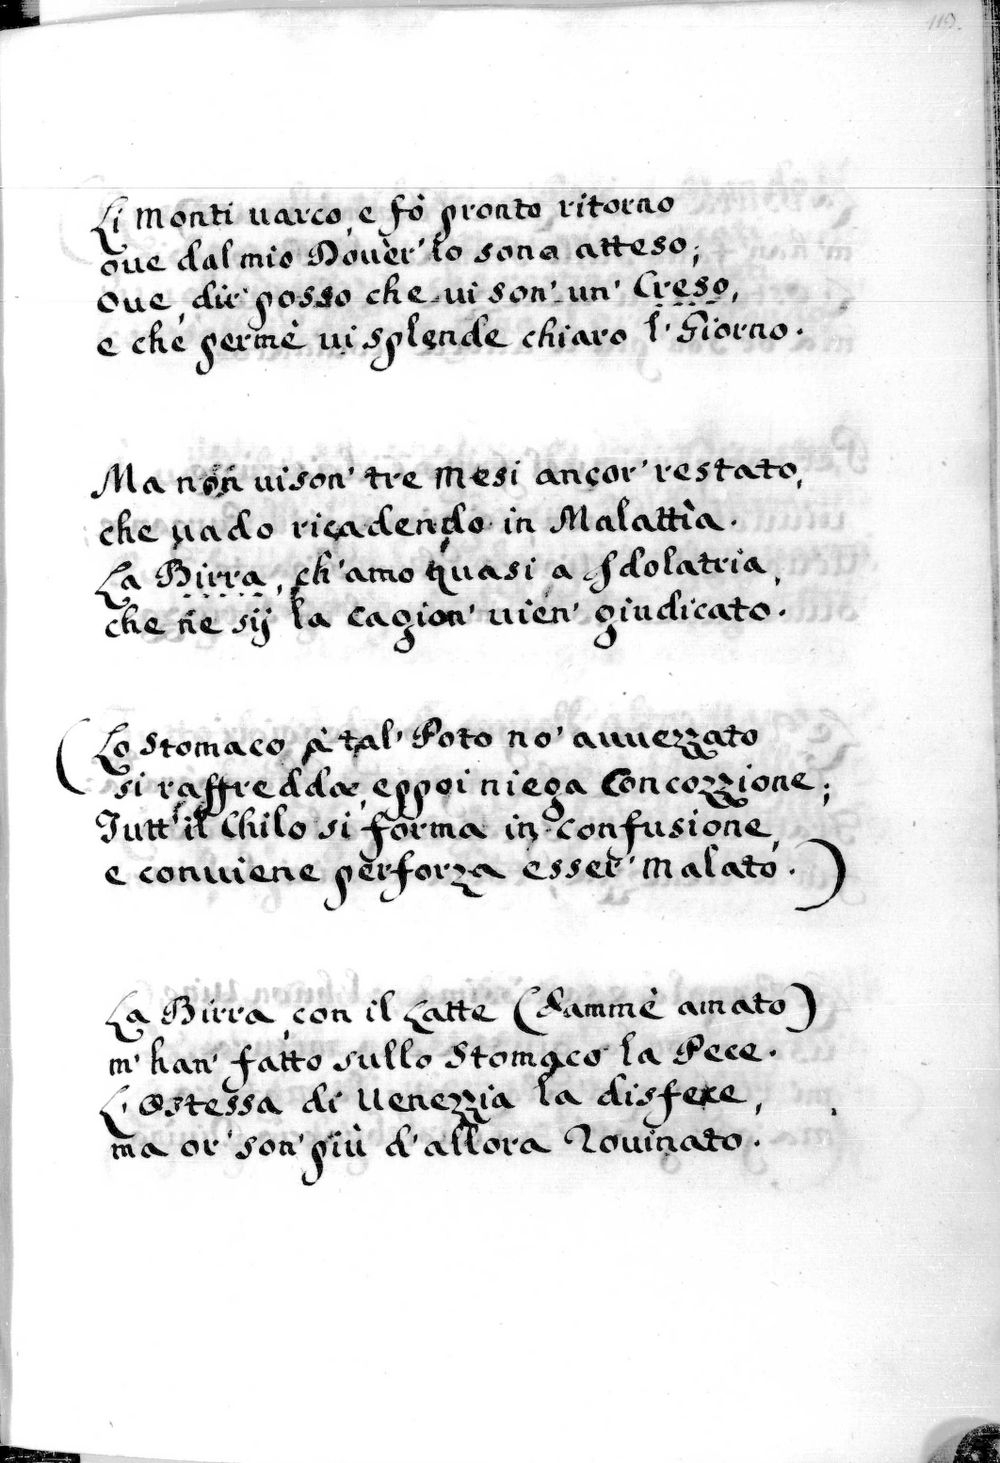 119.
Li Monti varco, e fò pronto ritorno
ove dal mio Dover' lo sona atteso;
Ove, dir' posso che vi son' un' Creso,
e che permè vi splende chiaro l' Giorno.
Ma non vi son' tre Mesi ancor' restato,
che vado ricadendo in Malattìa.
La Birra, ch' amo quasi a Idolatria,
che ne sij la cagion' vien' giudicato.
(Lo Stomaco à tal' Poto no' avvezzato
si raffredda, eppoi niega Concozzione;
Tutt' il Chilo si forma in confusione,
e conviene perforza esser' Malato.)
La Birra, con il Latte (dammè amato)
m' han' fatto sullo Stomaco la Pece.
L' Ostessa di Venezzia la disfece,
ma or' son' più d' allora Rovinato.